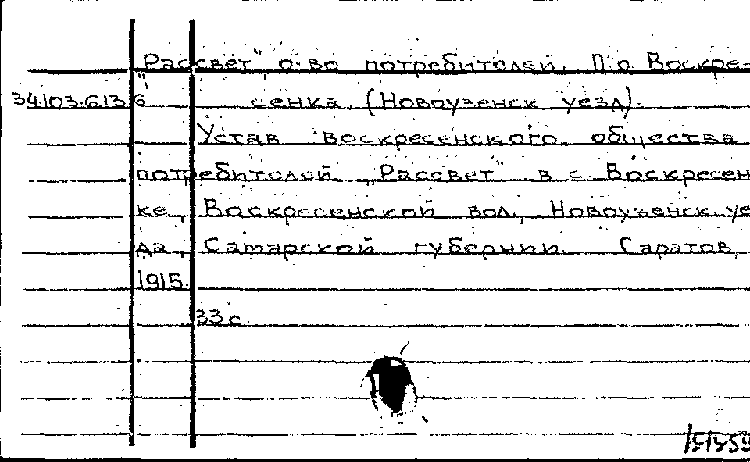 "Рассвет", о-во потребителей, п.о. Воскре-
34.103.6.13.6 сенка, (Новоузенск уезд).
Устав Воскресенского общества
потребителей „Рассвет" в с Воскресен
ке, Воскресенской вол., Новоузенск. уе
да, Самарской губернии. Саратов,
1915.
33 с.